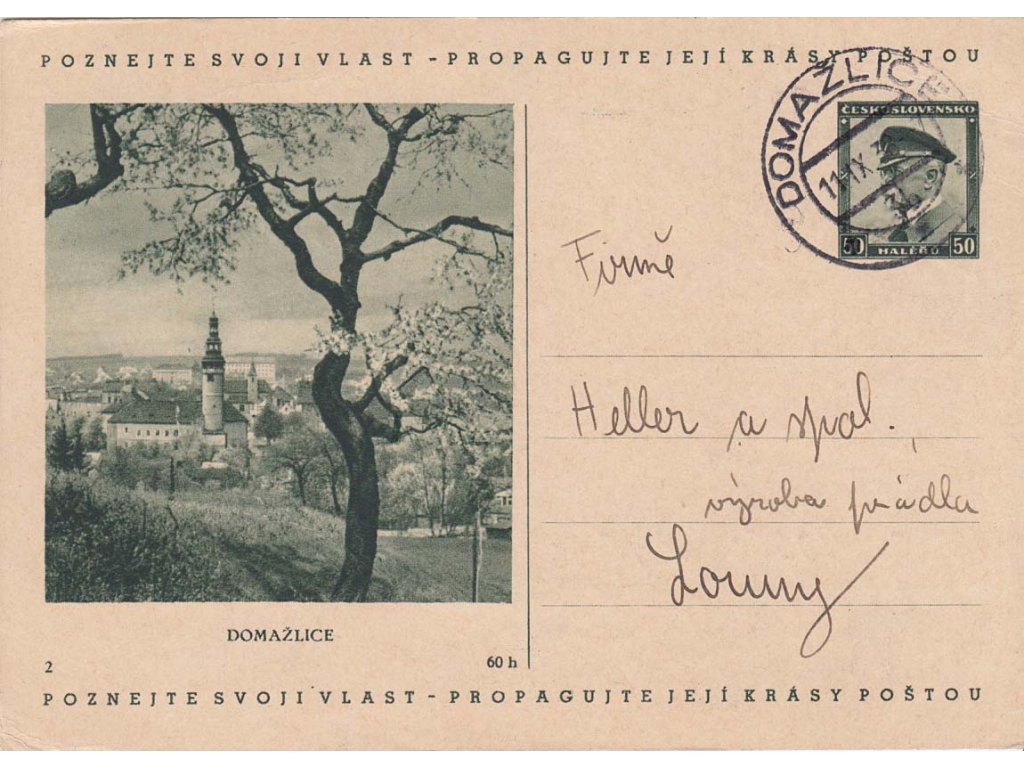 POZNEJTE SVOJI VLAST - PROPAGUJTE JEJÍ KRÁSY POŠTOU
DOMAŽLICE
11.IX.
ČESKOSLOVENSKO
50 HALÉŘŮ 50
Firmě
Heller a spol.,
výroba prádla
Louny
DOMAŽLICE
2
60 h
POZNEJTE SVOJI VLAST - PROPAGUJTE JEJÍ KRÁSY POŠTOU